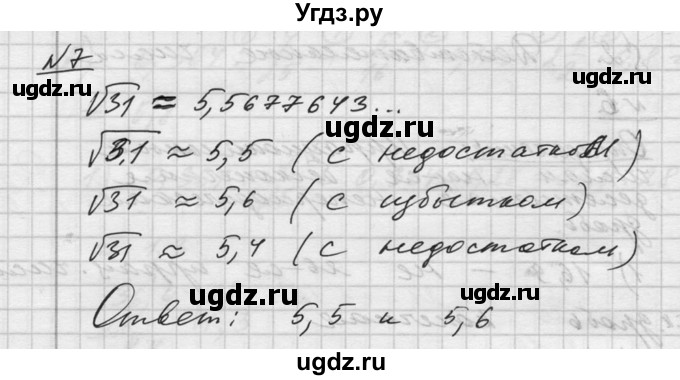 Угдз.ру
№7
ugdz.ru ugdz.ru
√31 ≈ 5,5677643...
ugdz.ru
√3,1 ≈ 5,5 (с недостатком)
√31 ≈ 5,6 (с избытком)
ugdz.ru ugdz.ru
√31 ≈ 5,4 (с недостатком)
ugdz.ru
Ответ: 5,5 и 5,6
ugdz.ru
ugdz.ru